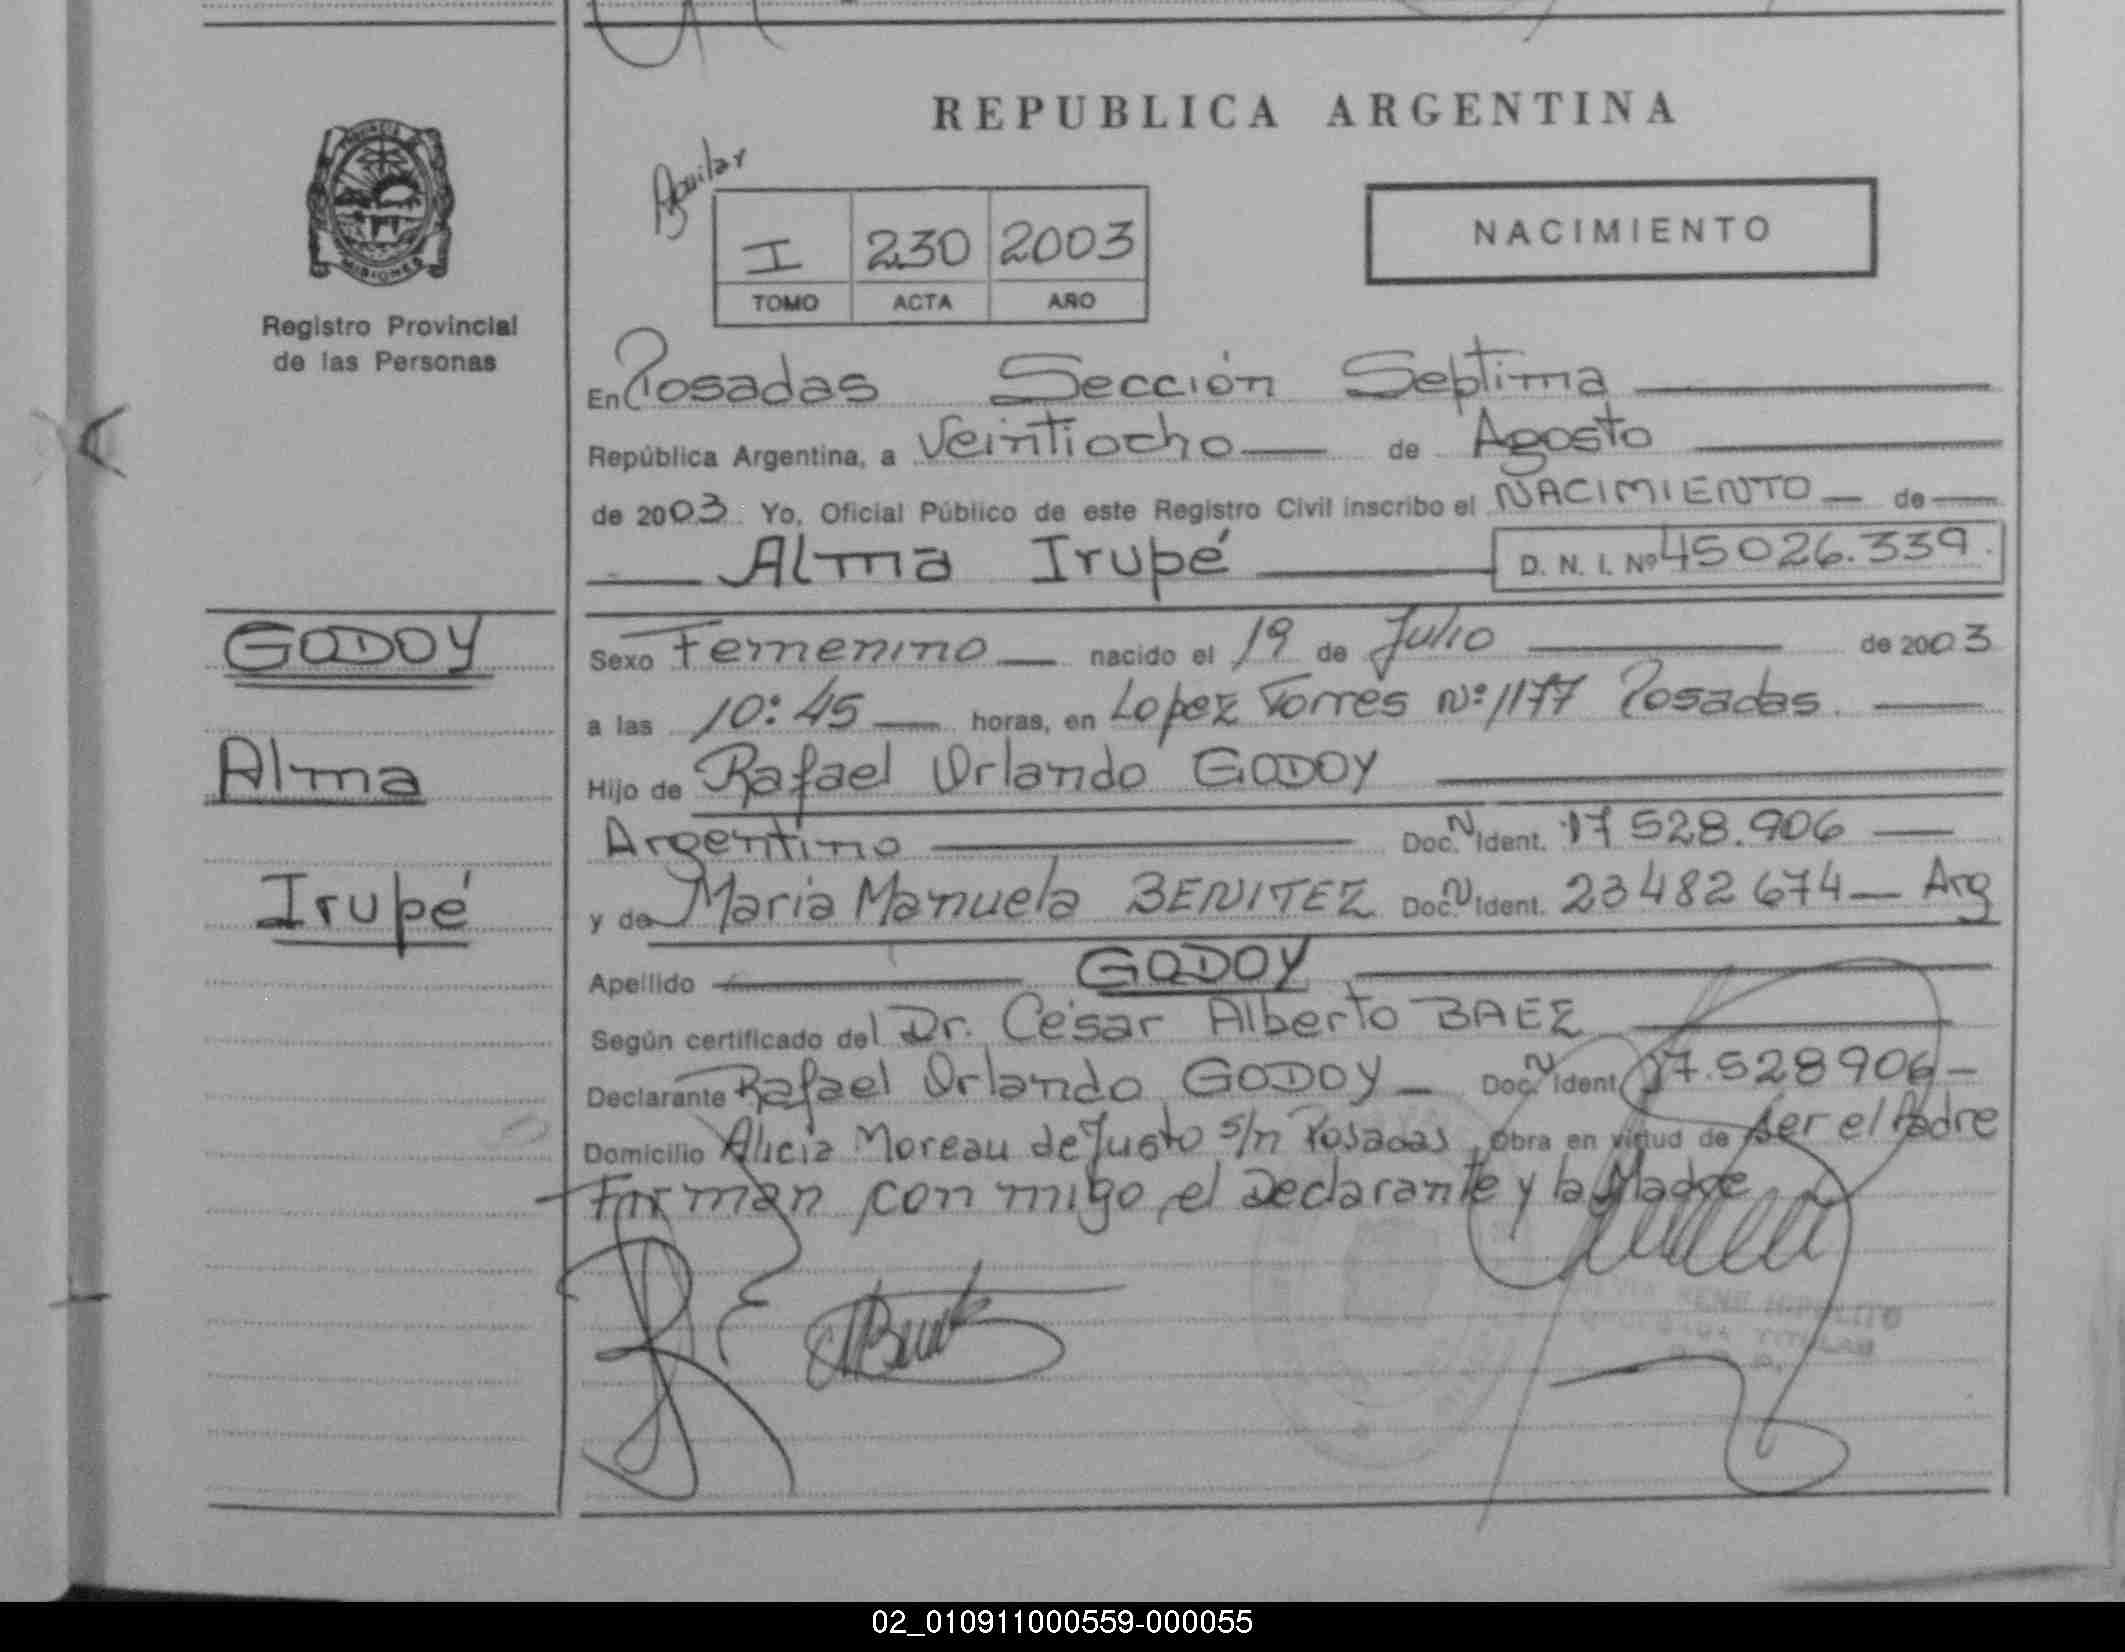 REPUBLICA ARGENTINA
Aguilar
MISIONES
I 230 2003
TOMO ACTA AÑO
NACIMIENTO
Registro Provincial
de las Personas
En Posadas Sección Septima
República Argentina, a Veintiocho de Agosto
de 2003 Yo, Oficial Público de este Registro Civil inscribo el NACIMIENTO de
Alma Irupé D. N. I. Nº 45026.339.
GODOY
Alma
Irupé
Sexo Femenino nacido el 19 de Julio de 2003
a las 10:45 horas, en Lopez Torres Nº 1177 Posadas.
Hijo de Rafael Orlando GODOY
Argentino Doc. N Ident. 17 528.906
y de Maria Manuela BENITEZ Doc. N Ident. 23 482 674 Arg
Apellido GODOY
Según certificado del Dr. César Alberto BAEZ
Declarante Rafael Orlando GODOY Doc. N Ident 17.528906
Domicilio Alicia Moreau de Justo s/n Posadas, Obra en virtud de ser el Padre
Firman con migo, el Declarante y la Madre
RENE HIPOLITO
TITULAR
02_010911000559-000055